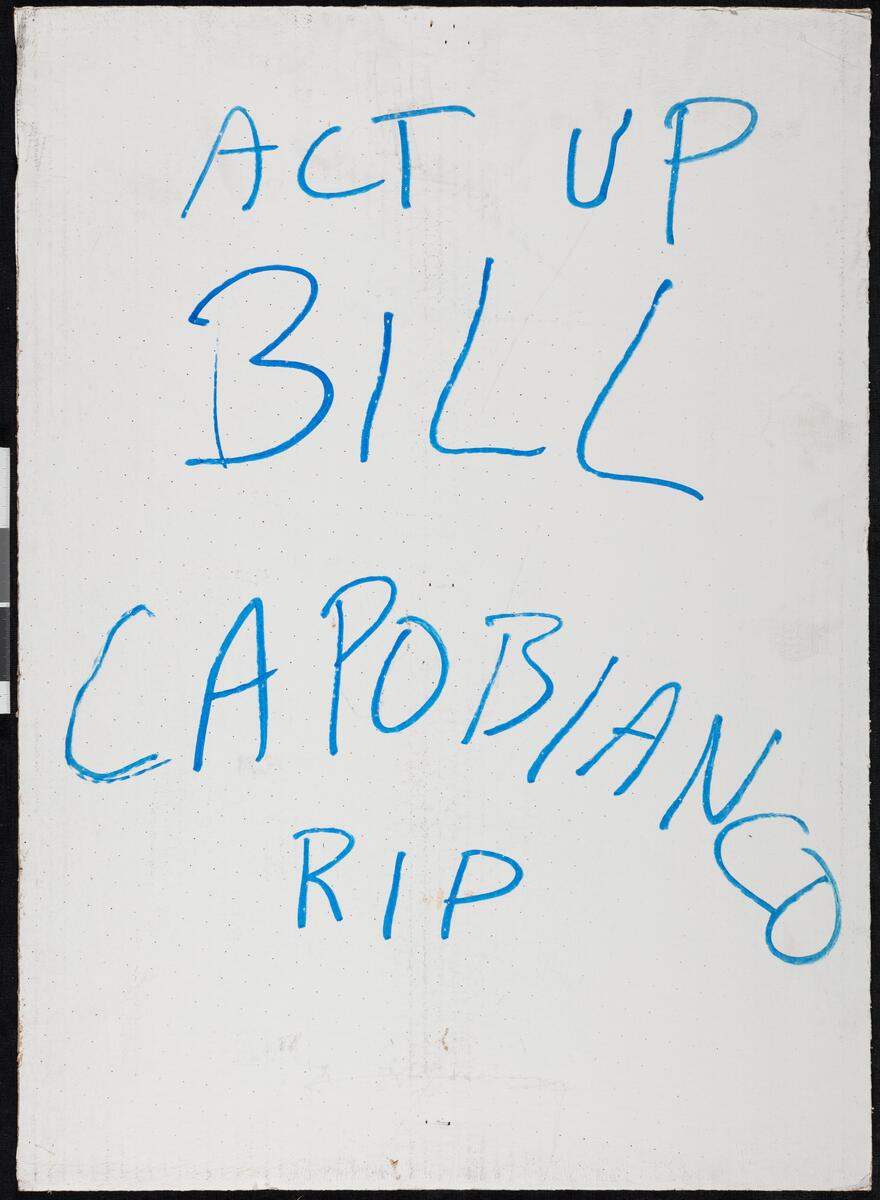 ACT UP
BILL
CAPOBIANCO
RIP